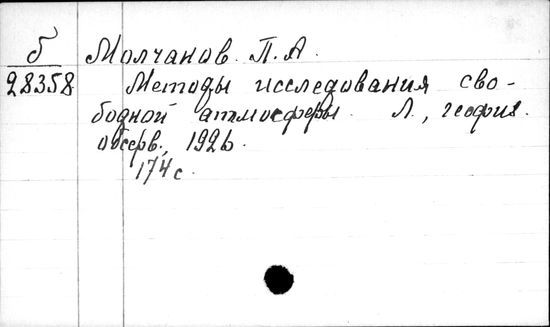 б
28358
Молчанов П. А.
Методы исследования сво-
бодной атмосферы. Л., геофиз.
обсерв., 1926.
174 с.